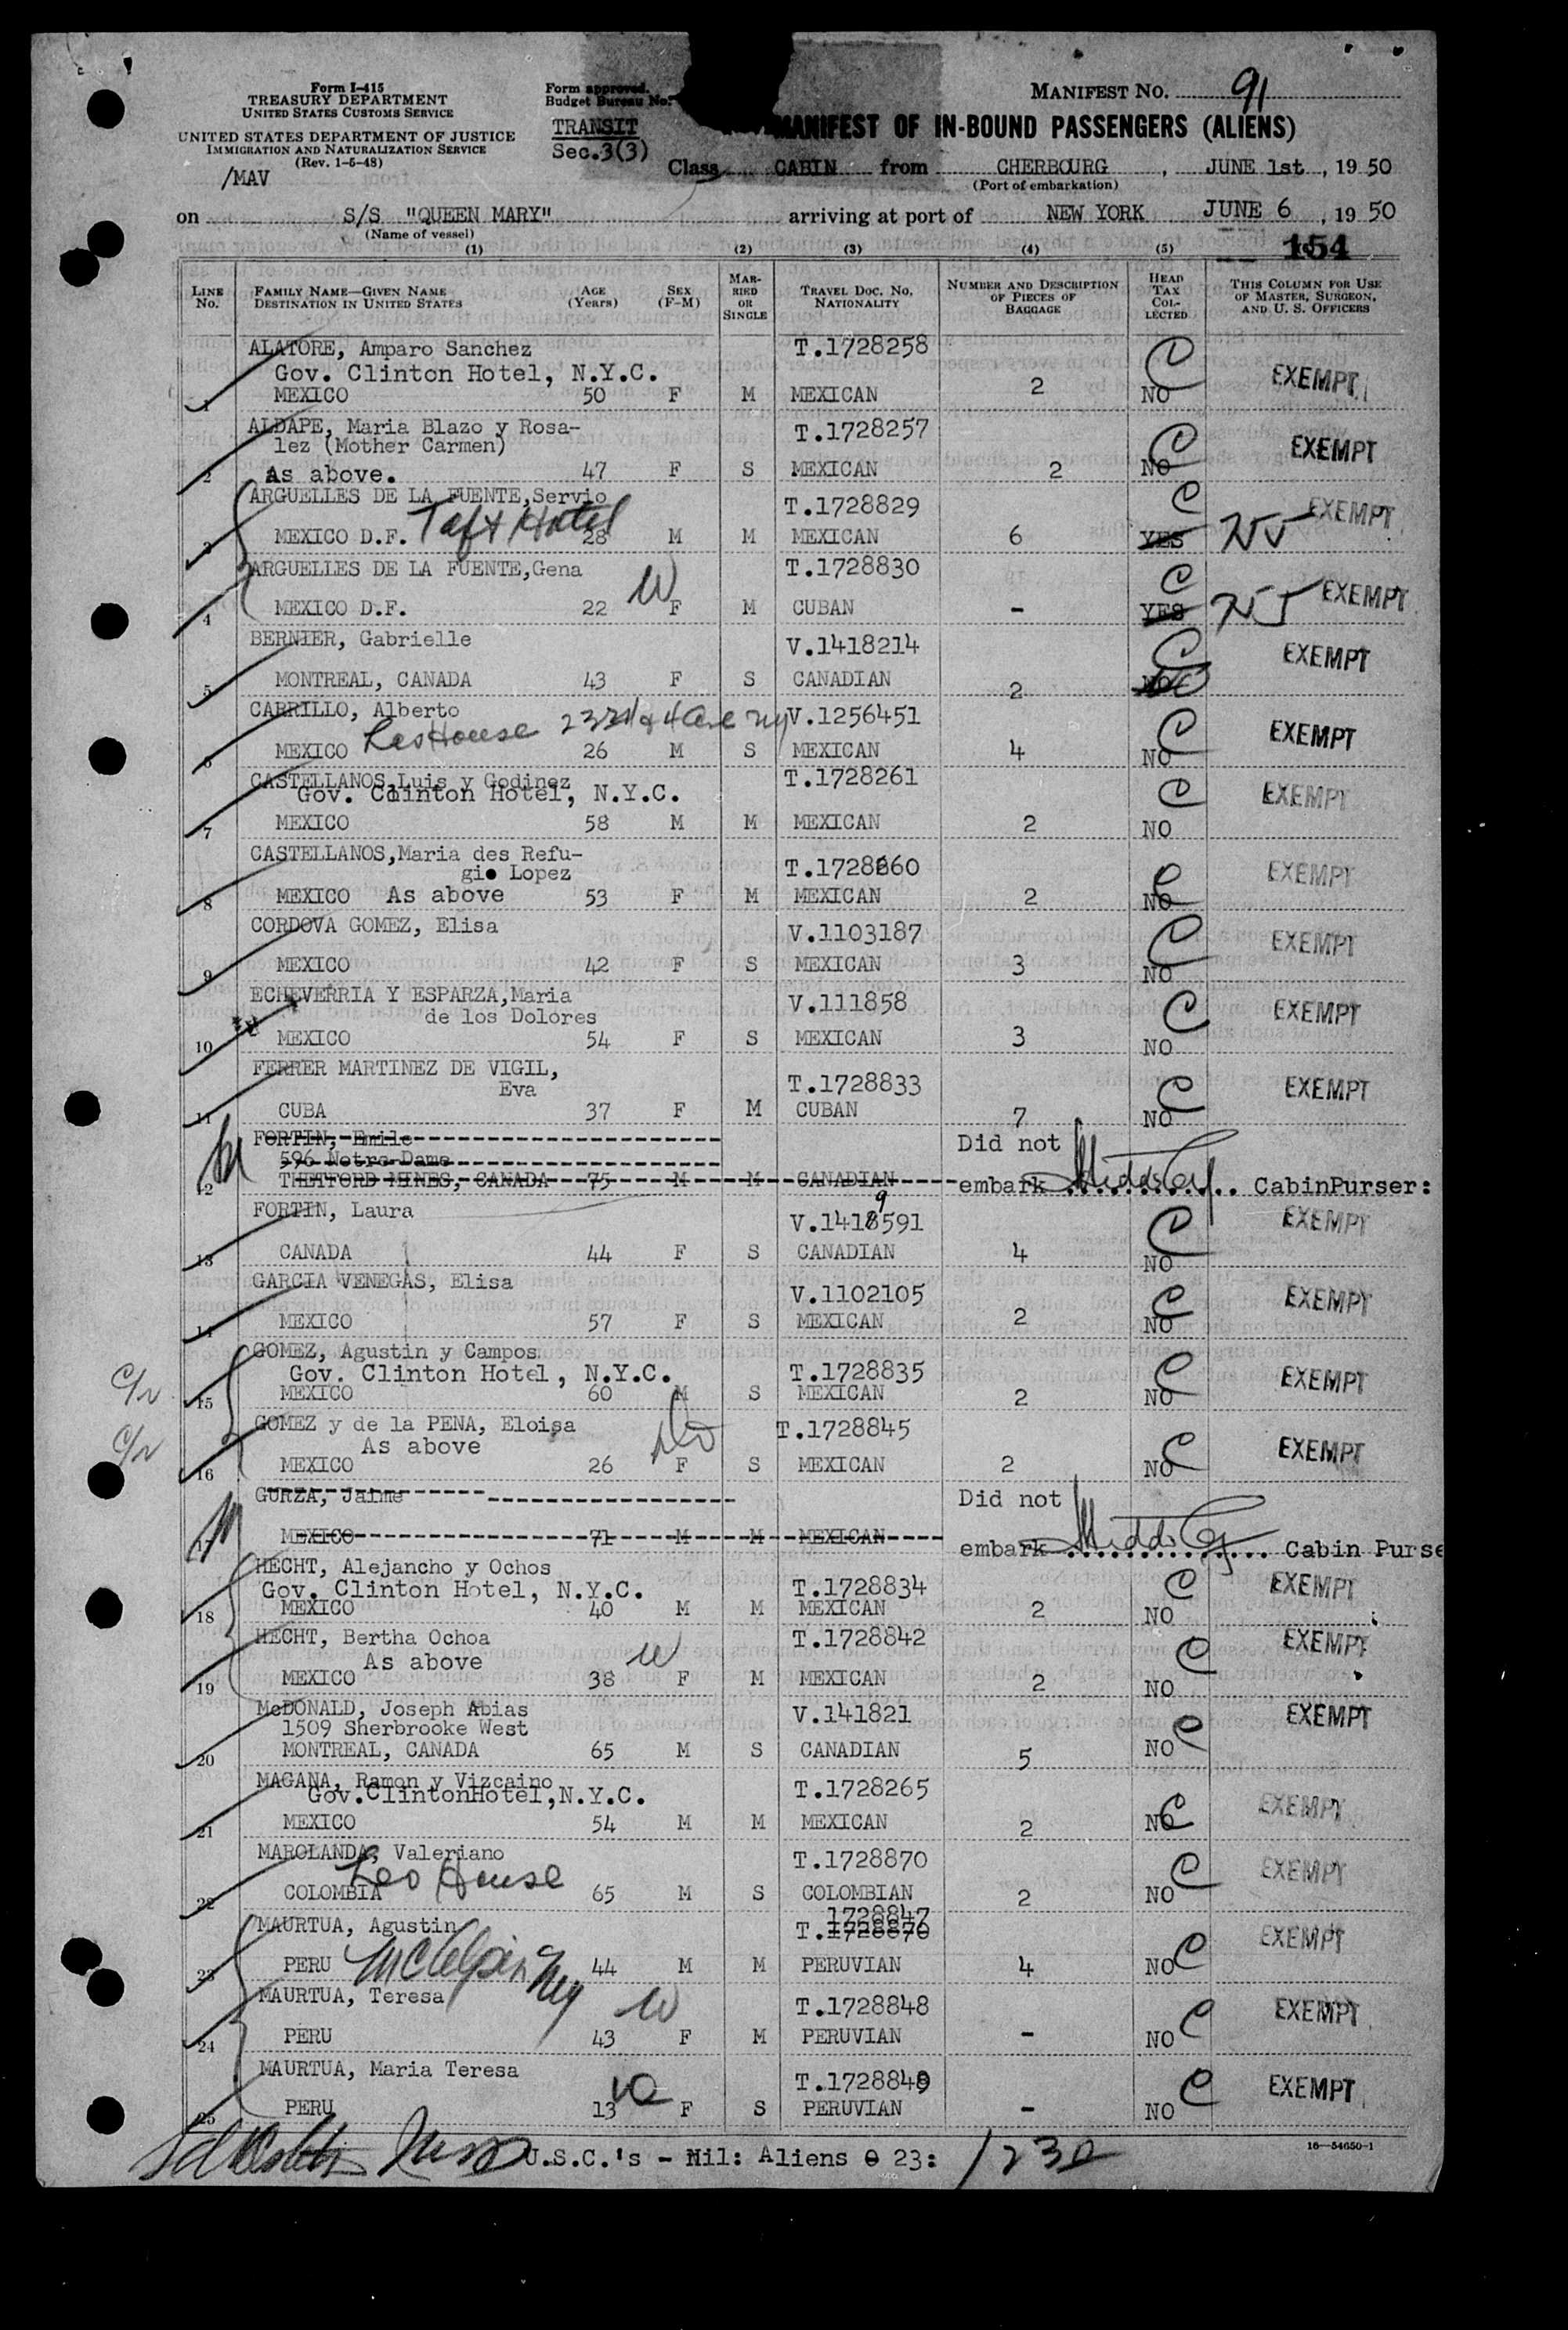 Form I-415
TREASURY DEPARTMENT
UNITED STATES CUSTOMS SERVICE
UNITED STATES DEPARTMENT OF JUSTICE
IMMIGRATION AND NATURALIZATION SERVICE
(Rev. 1-5-48)
/MAV
Form approved.
Budget Bureau No.
TRANSIT
Sec.3(3)
MANIFEST NO. 91
MANIFEST OF IN-BOUND PASSENGERS (ALIENS)
Class CABIN from CHERBOURG, JUNE 1st, 19 50
(Port of embarkation)
on S/S "QUEEN MARY" arriving at port of NEW YORK JUNE 6, 19 50
(Name of vessel)
(1) (2) (3) (4) (5) 154
LINE No. FAMILY NAME—GIVEN NAME DESTINATION IN UNITED STATES AGE (Years) SEX (F-M) MARRIED OR SINGLE TRAVEL DOC. NO. NATIONALITY NUMBER AND DESCRIPTION OF PIECES OF BAGGAGE HEAD TAX COLLECTED THIS COLUMN FOR USE OF MASTER, SURGEON, AND U. S. OFFICERS
ALATORE, Amparo Sanchez T.1728258 C
Gov. Clinton Hotel, N.Y.C. EXEMPT
1 MEXICO 50 F M MEXICAN 2 NO
ALDAPE, Maria Blazo y Rosa- T.1728257 C
lez (Mother Carmen) EXEMPT
2 As above. 47 F S MEXICAN 2 NO
ARGUELLES DE LA FUENTE,Servio T.1728829 C EXEMPT
3 MEXICO D.F. Taft Hotel 28 M M MEXICAN 6 YES
ARGUELLES DE LA FUENTE,Gena W T.1728830 C EXEMPT
4 MEXICO D.F. 22 F M CUBAN - YES
BERNIER, Gabrielle V.1418214 C EXEMPT
5 MONTREAL, CANADA 43 F S CANADIAN 2 NO
CARRILLO, Alberto V.1256451 C EXEMPT
6 MEXICO Leo House 23rd & 4 Ave NY 26 M S MEXICAN 4 NO
CASTELLANOS,Luis y Godinez T.1728261 C EXEMPT
Gov. Clinton Hotel, N.Y.C.
7 MEXICO 58 M M MEXICAN 2 NO
CASTELLANOS,Maria des Refu- T.1728260 C EXEMPT
gio Lopez
8 MEXICO As above 53 F M MEXICAN 2 NO
CORDOVA GOMEZ, Elisa V.1103187 C EXEMPT
9 MEXICO 42 F S MEXICAN 3 NO
ECHEVERRIA Y ESPARZA,Maria V.111858 C EXEMPT
de los Dolores
10 MEXICO 54 F S MEXICAN 3 NO
FERRER MARTINEZ DE VIGIL, T.1728833 C EXEMPT
Eva
11 CUBA 37 F M CUBAN 7 NO
FORTIN, Emile Did not
596 Notre Dame
12 THETFORD MINES, CANADA 75 M M CANADIAN embark CabinPurser:
FORTIN, Laura V.1419591 C EXEMPT
13 CANADA 44 F S CANADIAN 4 NO
GARCIA VENEGAS, Elisa V.1102105 C EXEMPT
14 MEXICO 57 F S MEXICAN 2 NO
GOMEZ, Agustin y Campos
Gov. Clinton Hotel, N.Y.C. T.1728835 C EXEMPT
15 MEXICO 60 M S MEXICAN 2 NO
GOMEZ y de la PENA, Eloisa T.1728845 C EXEMPT
As above
16 MEXICO 26 F S MEXICAN 2 NO
GURZA, Jaime Did not
17 MEXICO 71 M M MEXICAN embark Cabin Purse
HECHT, Alejancho y Ochos C EXEMPT
Gov. Clinton Hotel, N.Y.C. T.1728834
18 MEXICO 40 M M MEXICAN 2 NO
HECHT, Bertha Ochoa W T.1728842 C EXEMPT
As above
19 MEXICO 38 F M MEXICAN 2 NO
McDONALD, Joseph Abias V.141821 C EXEMPT
1509 Sherbrooke West
20 MONTREAL, CANADA 65 M S CANADIAN 5 NO
MAGANA, Ramon y Vizcaino T.1728265 C EXEMPT
Gov.ClintonHotel,N.Y.C.
21 MEXICO 54 M M MEXICAN 2 NO
MAROLANDA, Valeriano T.1728870 C EXEMPT
Leo House
22 COLOMBIA 65 M S COLOMBIAN 2 NO
1728847
MAURTUA, Agustin T.1728870 C EXEMPT
23 PERU McAlpin NY 44 M M PERUVIAN 4 NO
MAURTUA, Teresa W T.1728848 C EXEMPT
24 PERU 43 F M PERUVIAN - NO
MAURTUA, Maria Teresa T.1728849 C EXEMPT
25 PERU 13 F S PERUVIAN - NO
U.S.C.'s - Nil: Aliens 23:
16—54650-1